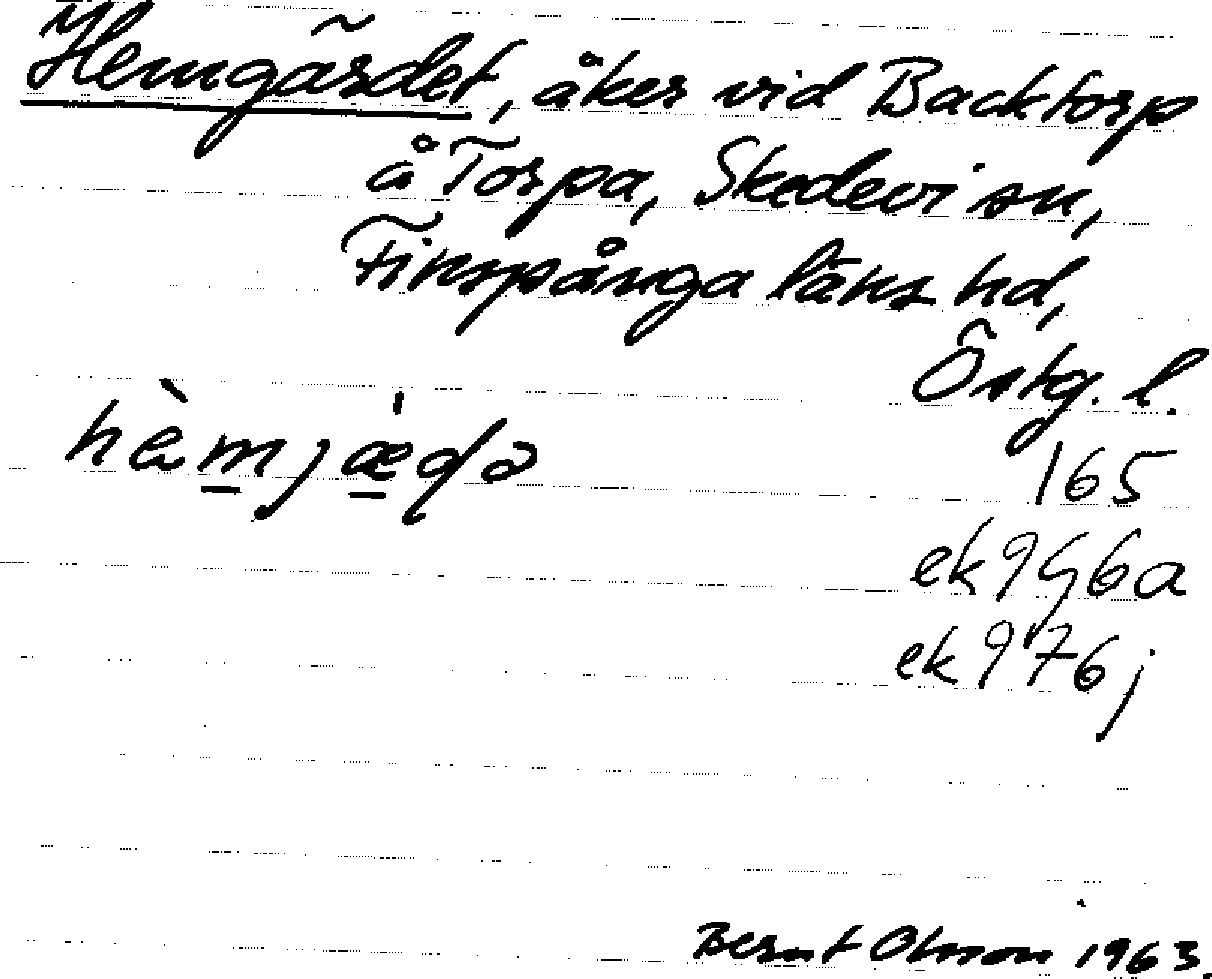 Hemgärdet, åker vid Backtorp
å Torpa, Skedevi sn,
Finspånga läns hd,
Östg. l.
hèmjæ̀ɖə
165
ek 9G6a
ek 976j
Bernt Olsson 1963.